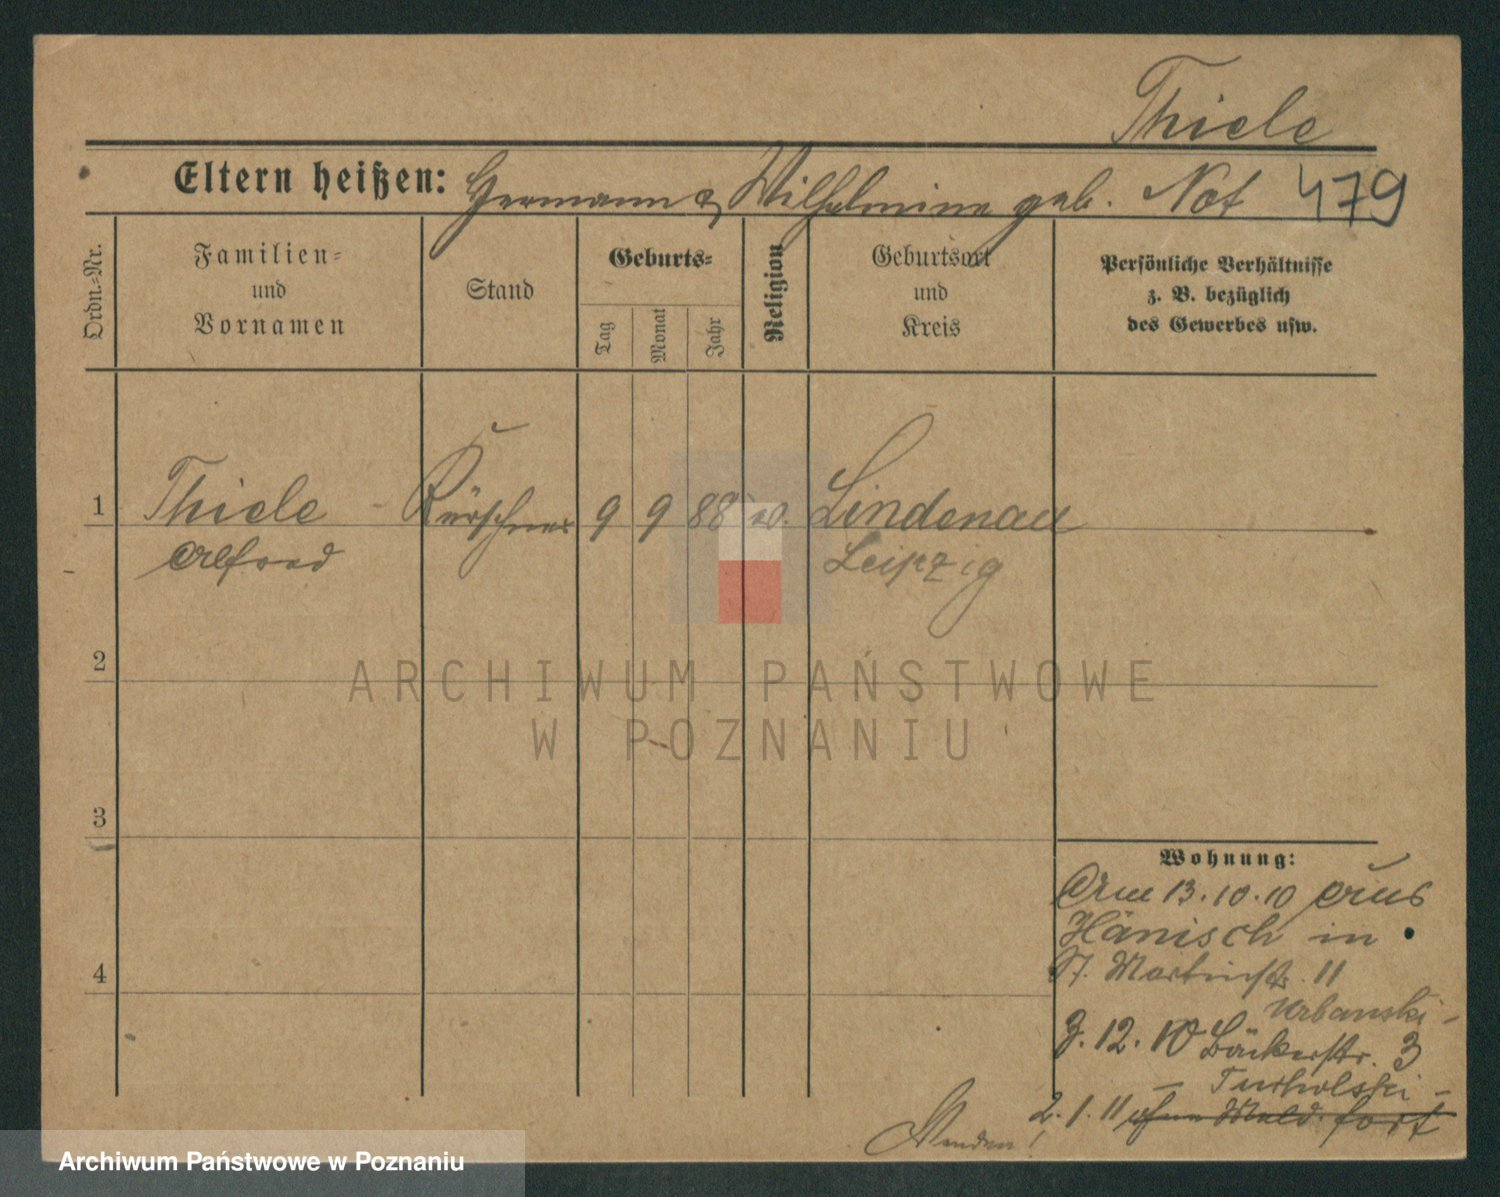 Thiele
Eltern heißen: Hermann & Wilhelmine geb. Not 479
Ordn.-Nr.
Familien-
und
Vornamen
Stand
Geburts-
Tag
Monat
Jahr
Religion
Geburtsort
und
Kreis
Persönliche Verhältnisse
z. B. bezüglich
des Gewerbes usw.
1 Thiele - Kürschner 9 9 88 ev. Lindenau
Alfred Leipzig
2
3
4
Wohnung:
Am 13.10.10 aus
Hänisch in
St. Martinstr. 11
Urbanski -
3.12.10 Bäckerstr. 3
- Turholski -
2.1.11 ohne Meld. fort
ARCHIWUM PAŃSTWOWE
W POZNANIU
Archiwum Państwowe w Poznaniu